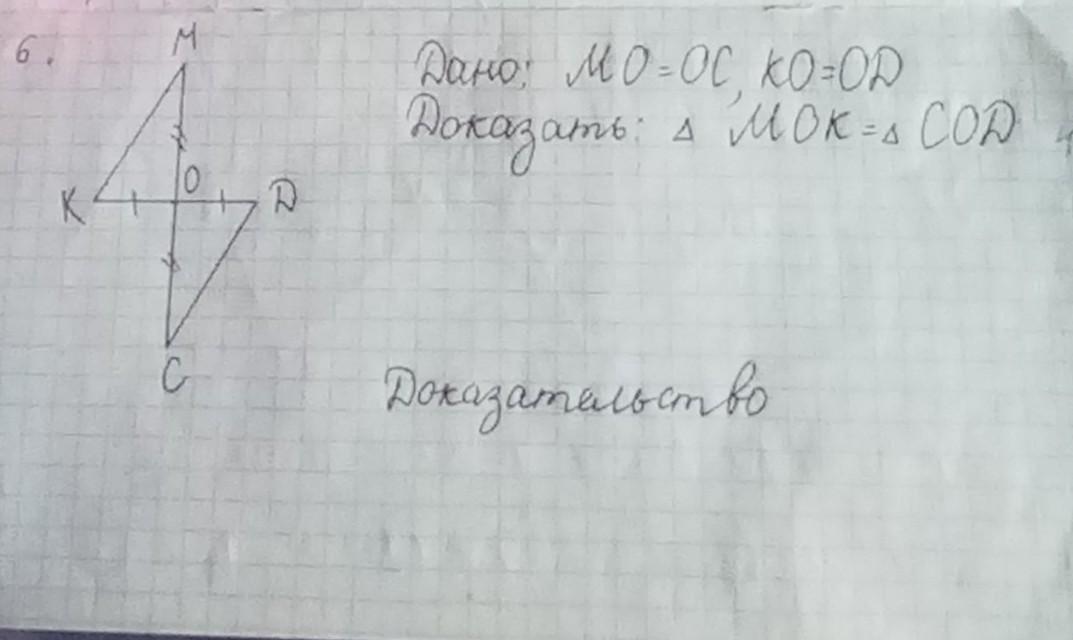 6.
M
Дано: MO=OC, KO=OD
Доказать: △ MOK=△ COD
O
K
D
C
Доказательство